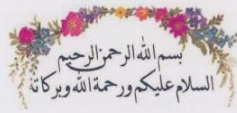 بسم الله الرحمن الرحيم
السلام عليكم ورحمة الله وبركاته